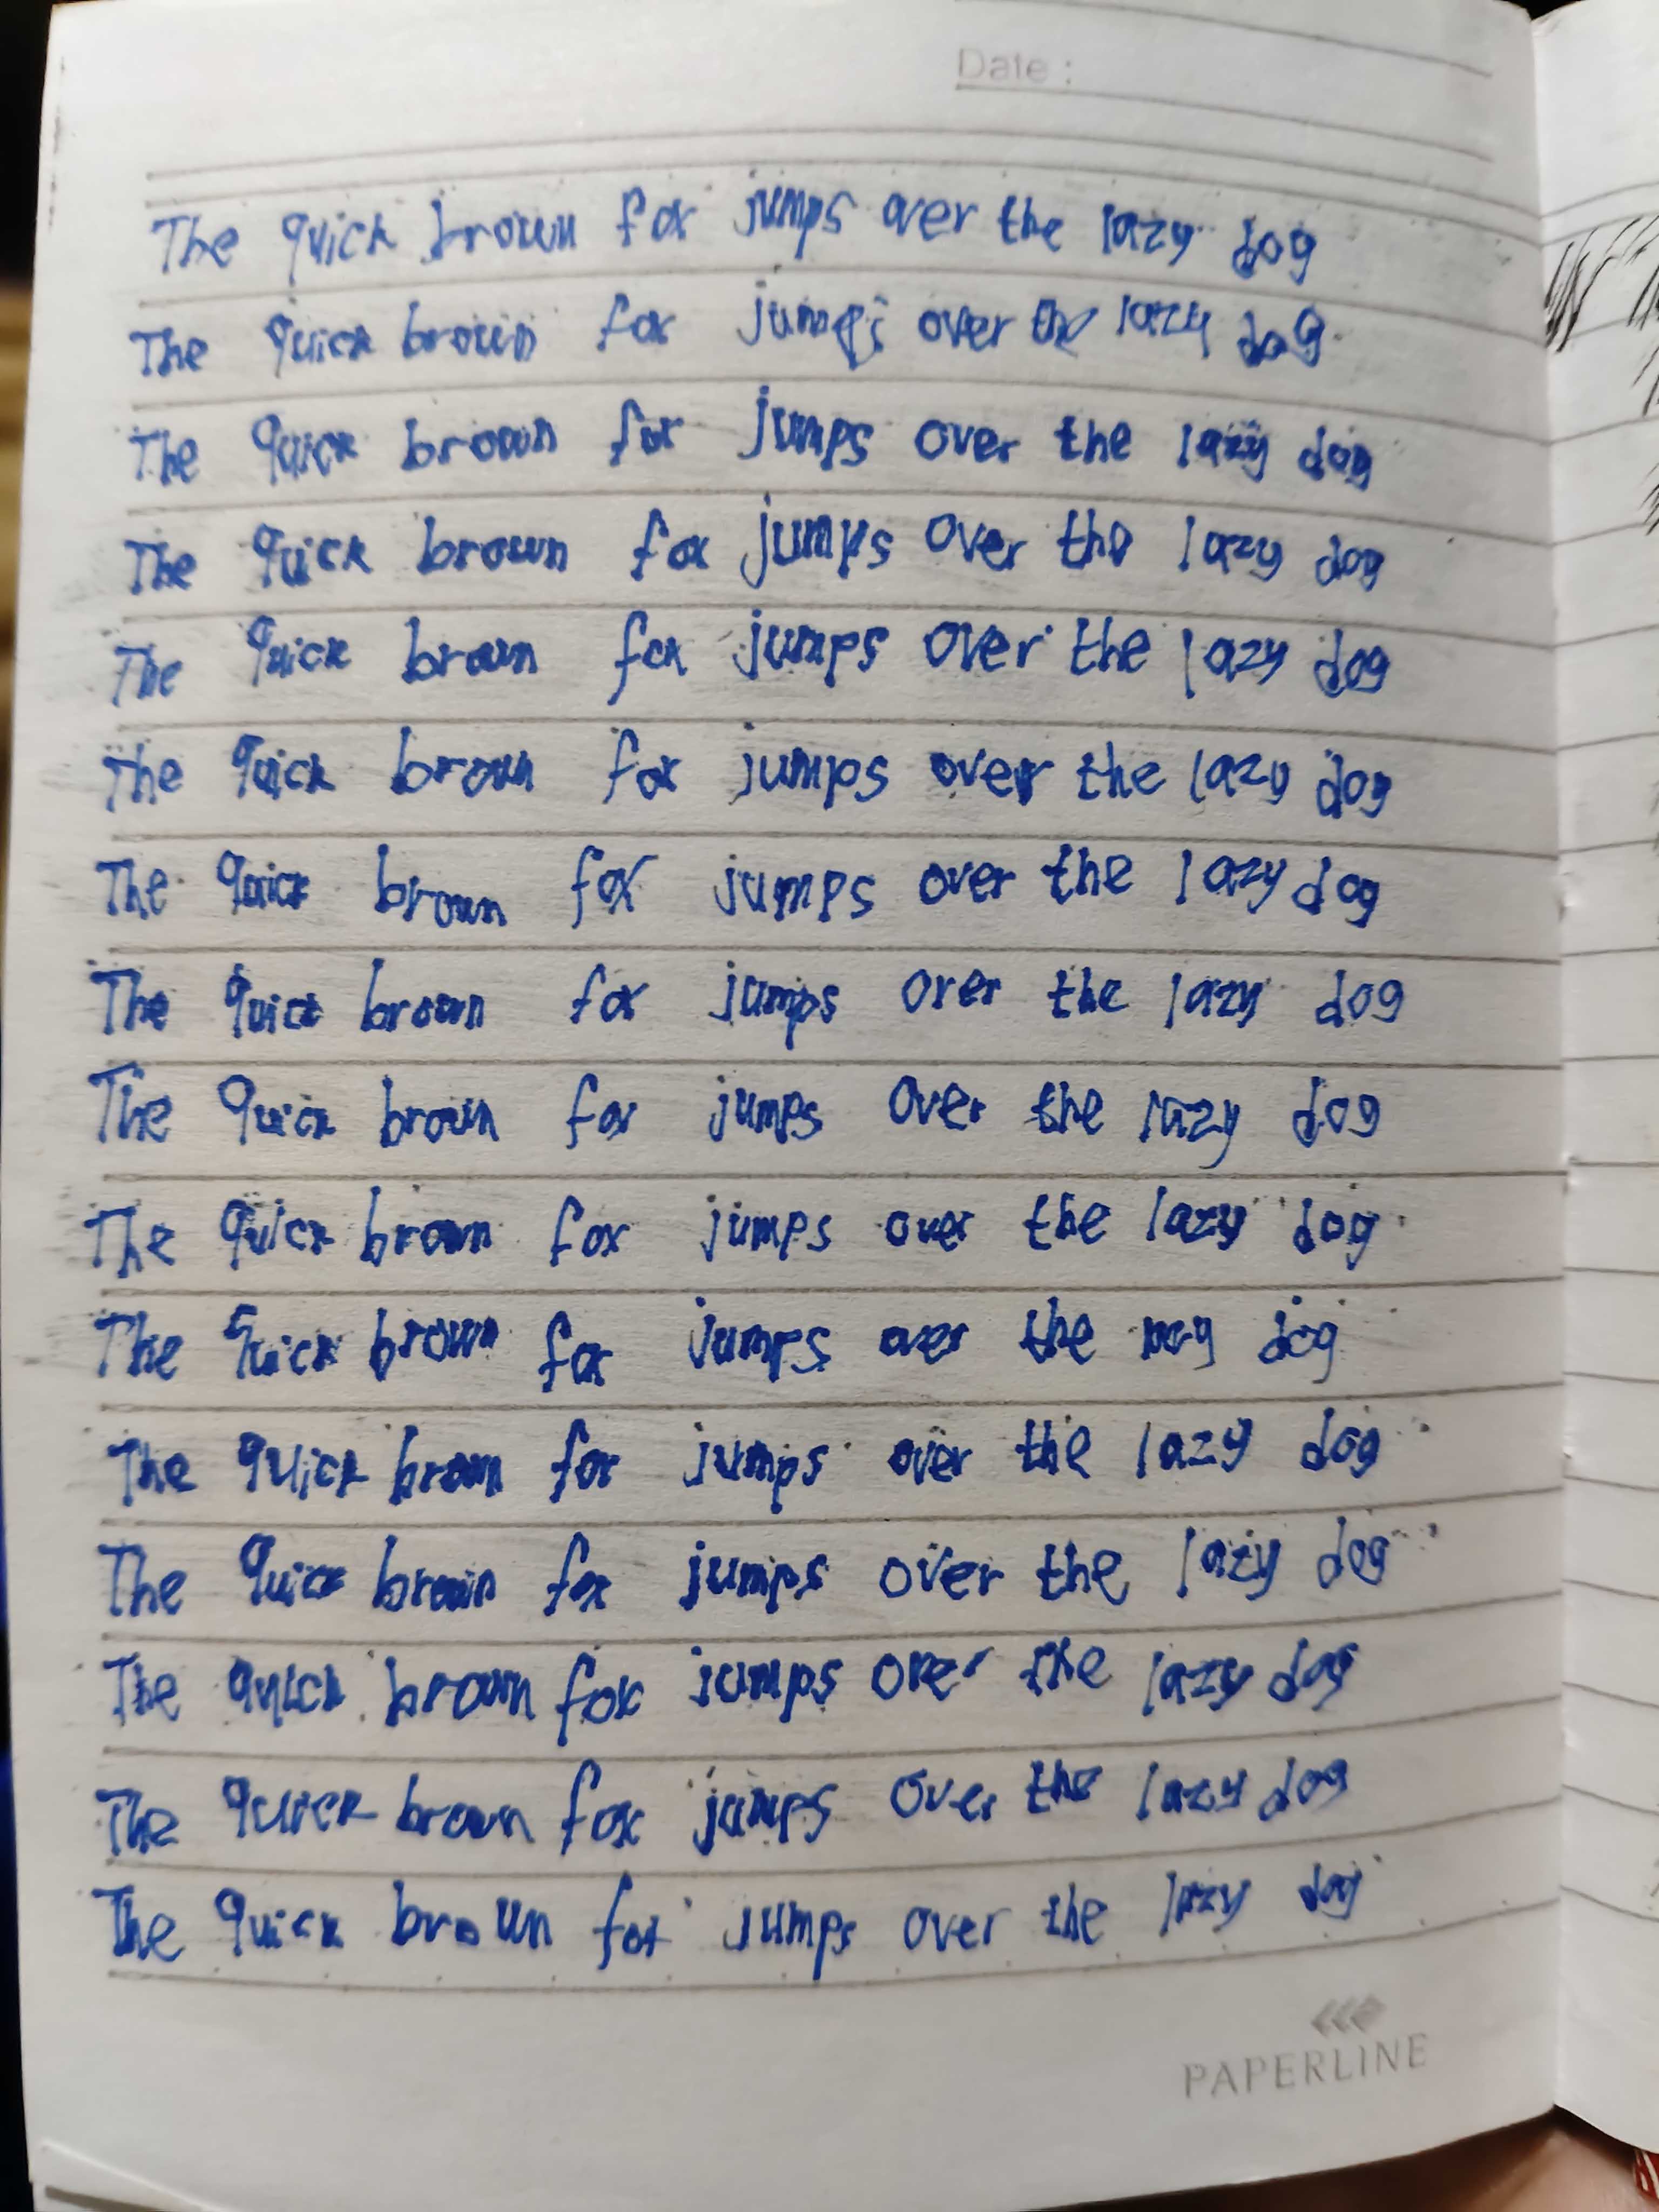 Date :
The quick brown fox jumps over the lazy dog
The quick brown fox jumps over the lazy dog
The quick brown fox jumps over the lazy dog
The quick brown fox jumps over the lazy dog
The quick brown fox jumps over the lazy dog
The quick brown fox jumps over the lazy dog
The quick brown fox jumps over the lazy dog
The quick brown fox jumps over the lazy dog
The quick brown fox jumps over the lazy dog
The quick brown fox jumps over the lazy dog
The quick brown fox jumps over the dog
The quick brown fox jumps over the lazy dog
The quick brown fox jumps over the lazy dog
The quick brown fox jumps over the lazy dog
The quick brown fox jumps over the lazy dog
The quick brown fox jumps over the lazy dog
PAPERLINE